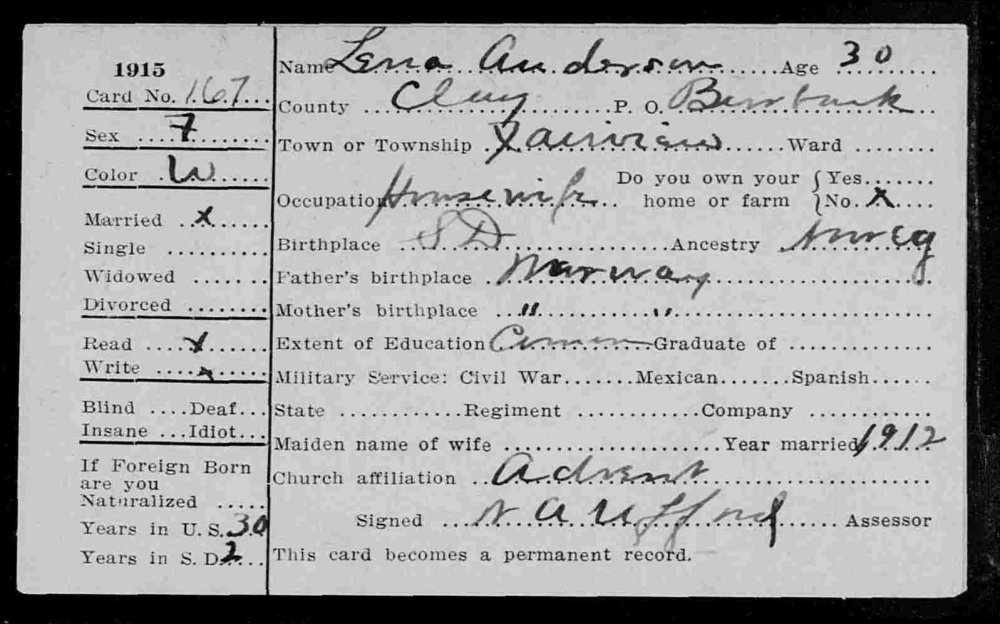 1915
Card No. 167
Sex F
Color W
Married x
Single
Widowed
Divorced
Read x
Write x
Blind Deaf
Insane Idiot
If Foreign Born
are you
Naturalized
Years in U. S. 30
Years in S. D. 2
Name Lena Anderson Age 30
County Clay P. O. Burbank
Town or Township Fairview Ward
Occupation Housewife Do you own your home or farm { Yes
No. X
Birthplace S D Ancestry
Father's birthplace Norway
Mother's birthplace " "
Extent of Education Common Graduate of
Military Service: Civil War Mexican Spanish
State Regiment Company
Maiden name of wife Year married 1912
Church affiliation Advent
Signed A Ufford Assessor
This card becomes a permanent record.